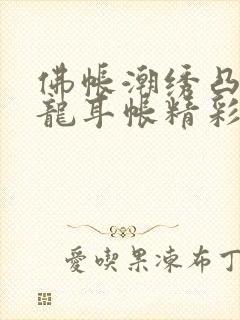 佛帳潮绣凸
龍耳帳精彩
愛喫果凍布丁